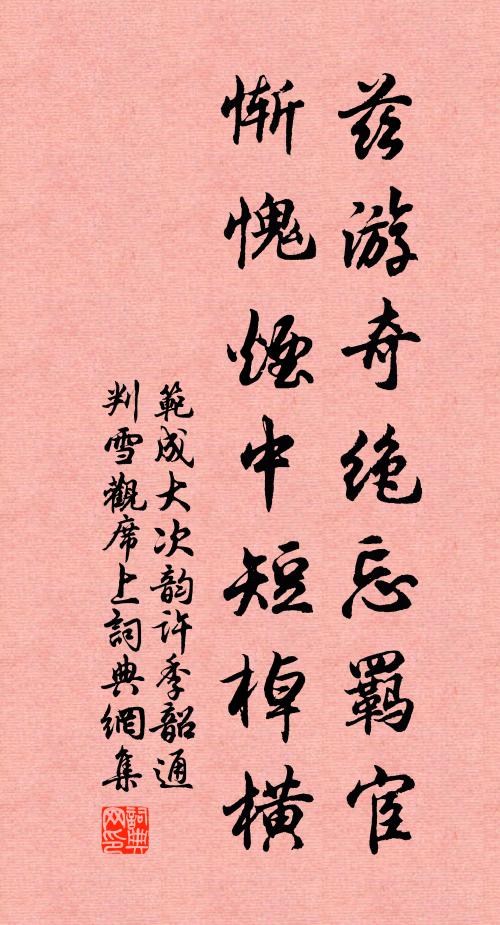 茲游奇絶忘羈宦
慚愧煙中短棹橫
範成大次韵許季韶通
判雪觀席上詞典網集
詞典网印